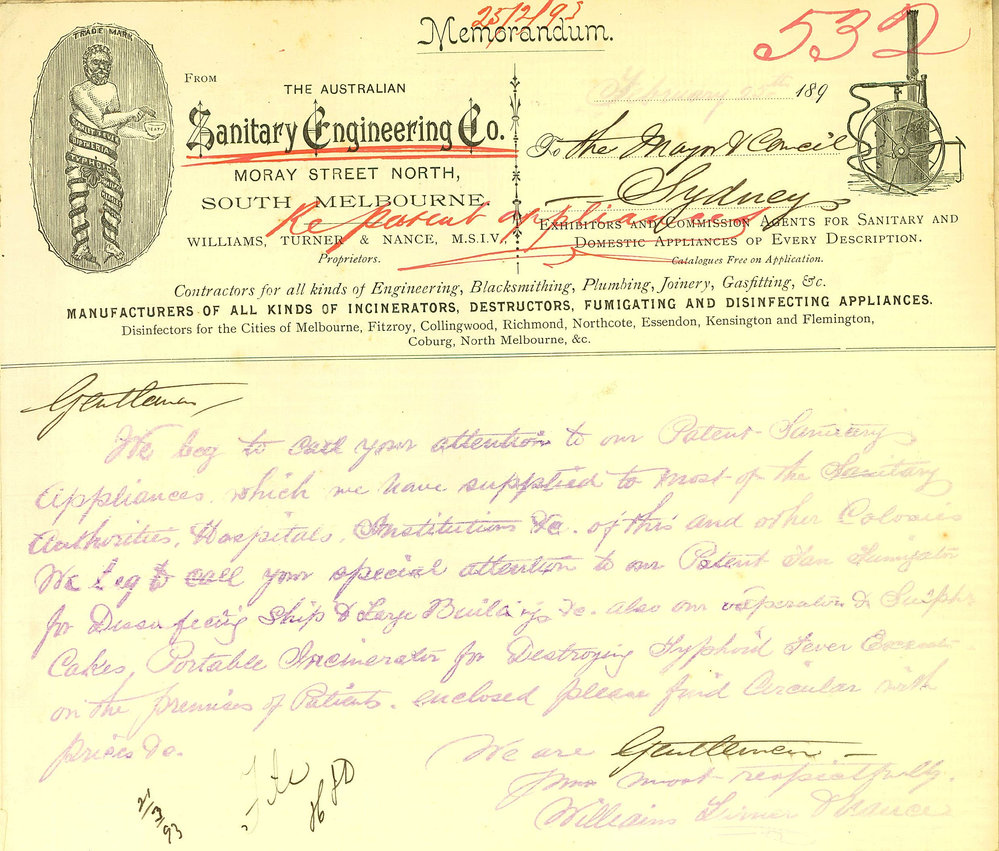 25/2/93
Memorandum.
532
TRADE MARK
From
THE AUSTRALIAN
Sanitary Engineering Co.
MORAY STREET NORTH,
SOUTH MELBOURNE.
WILLIAMS, TURNER & NANCE, M.S.I.V.,
Proprietors.
February 25th 189
To the Mayor & Council
Sydney
Re patent appliances
Exhibitors and Commission Agents for Sanitary and
Domestic Appliances of Every Description.
Catalogues Free on Application.
DIPTHERIA
TYPHOID
Contractors for all kinds of Engineering, Blacksmithing, Plumbing, Joinery, Gasfitting, &c.
MANUFACTURERS OF ALL KINDS OF INCINERATORS, DESTRUCTORS, FUMIGATING AND DISINFECTING APPLIANCES.
Disinfectors for the Cities of Melbourne, Fitzroy, Collingwood, Richmond, Northcote, Essendon, Kensington and Flemington,
Coburg, North Melbourne, &c.
Gentlemen
We beg to call your attention to our Patent Sanitary
Appliances which we have supplied to most of the Sanitary
Authorities, Hospitals, Institutions &c. of this and other Colonies
We beg to call your special attention to our Patent Fan Fumigator
for Disinfecting Ship & Large Buildings &c. also our &
Cakes, Portable Incinerator for Destroying Typhoid Fever
on the premises of Patients. enclosed please find Circular with
prices &c.
We are Gentlemen
Yours most respectfully.
Williams Turner & Nance
File
2/3/93